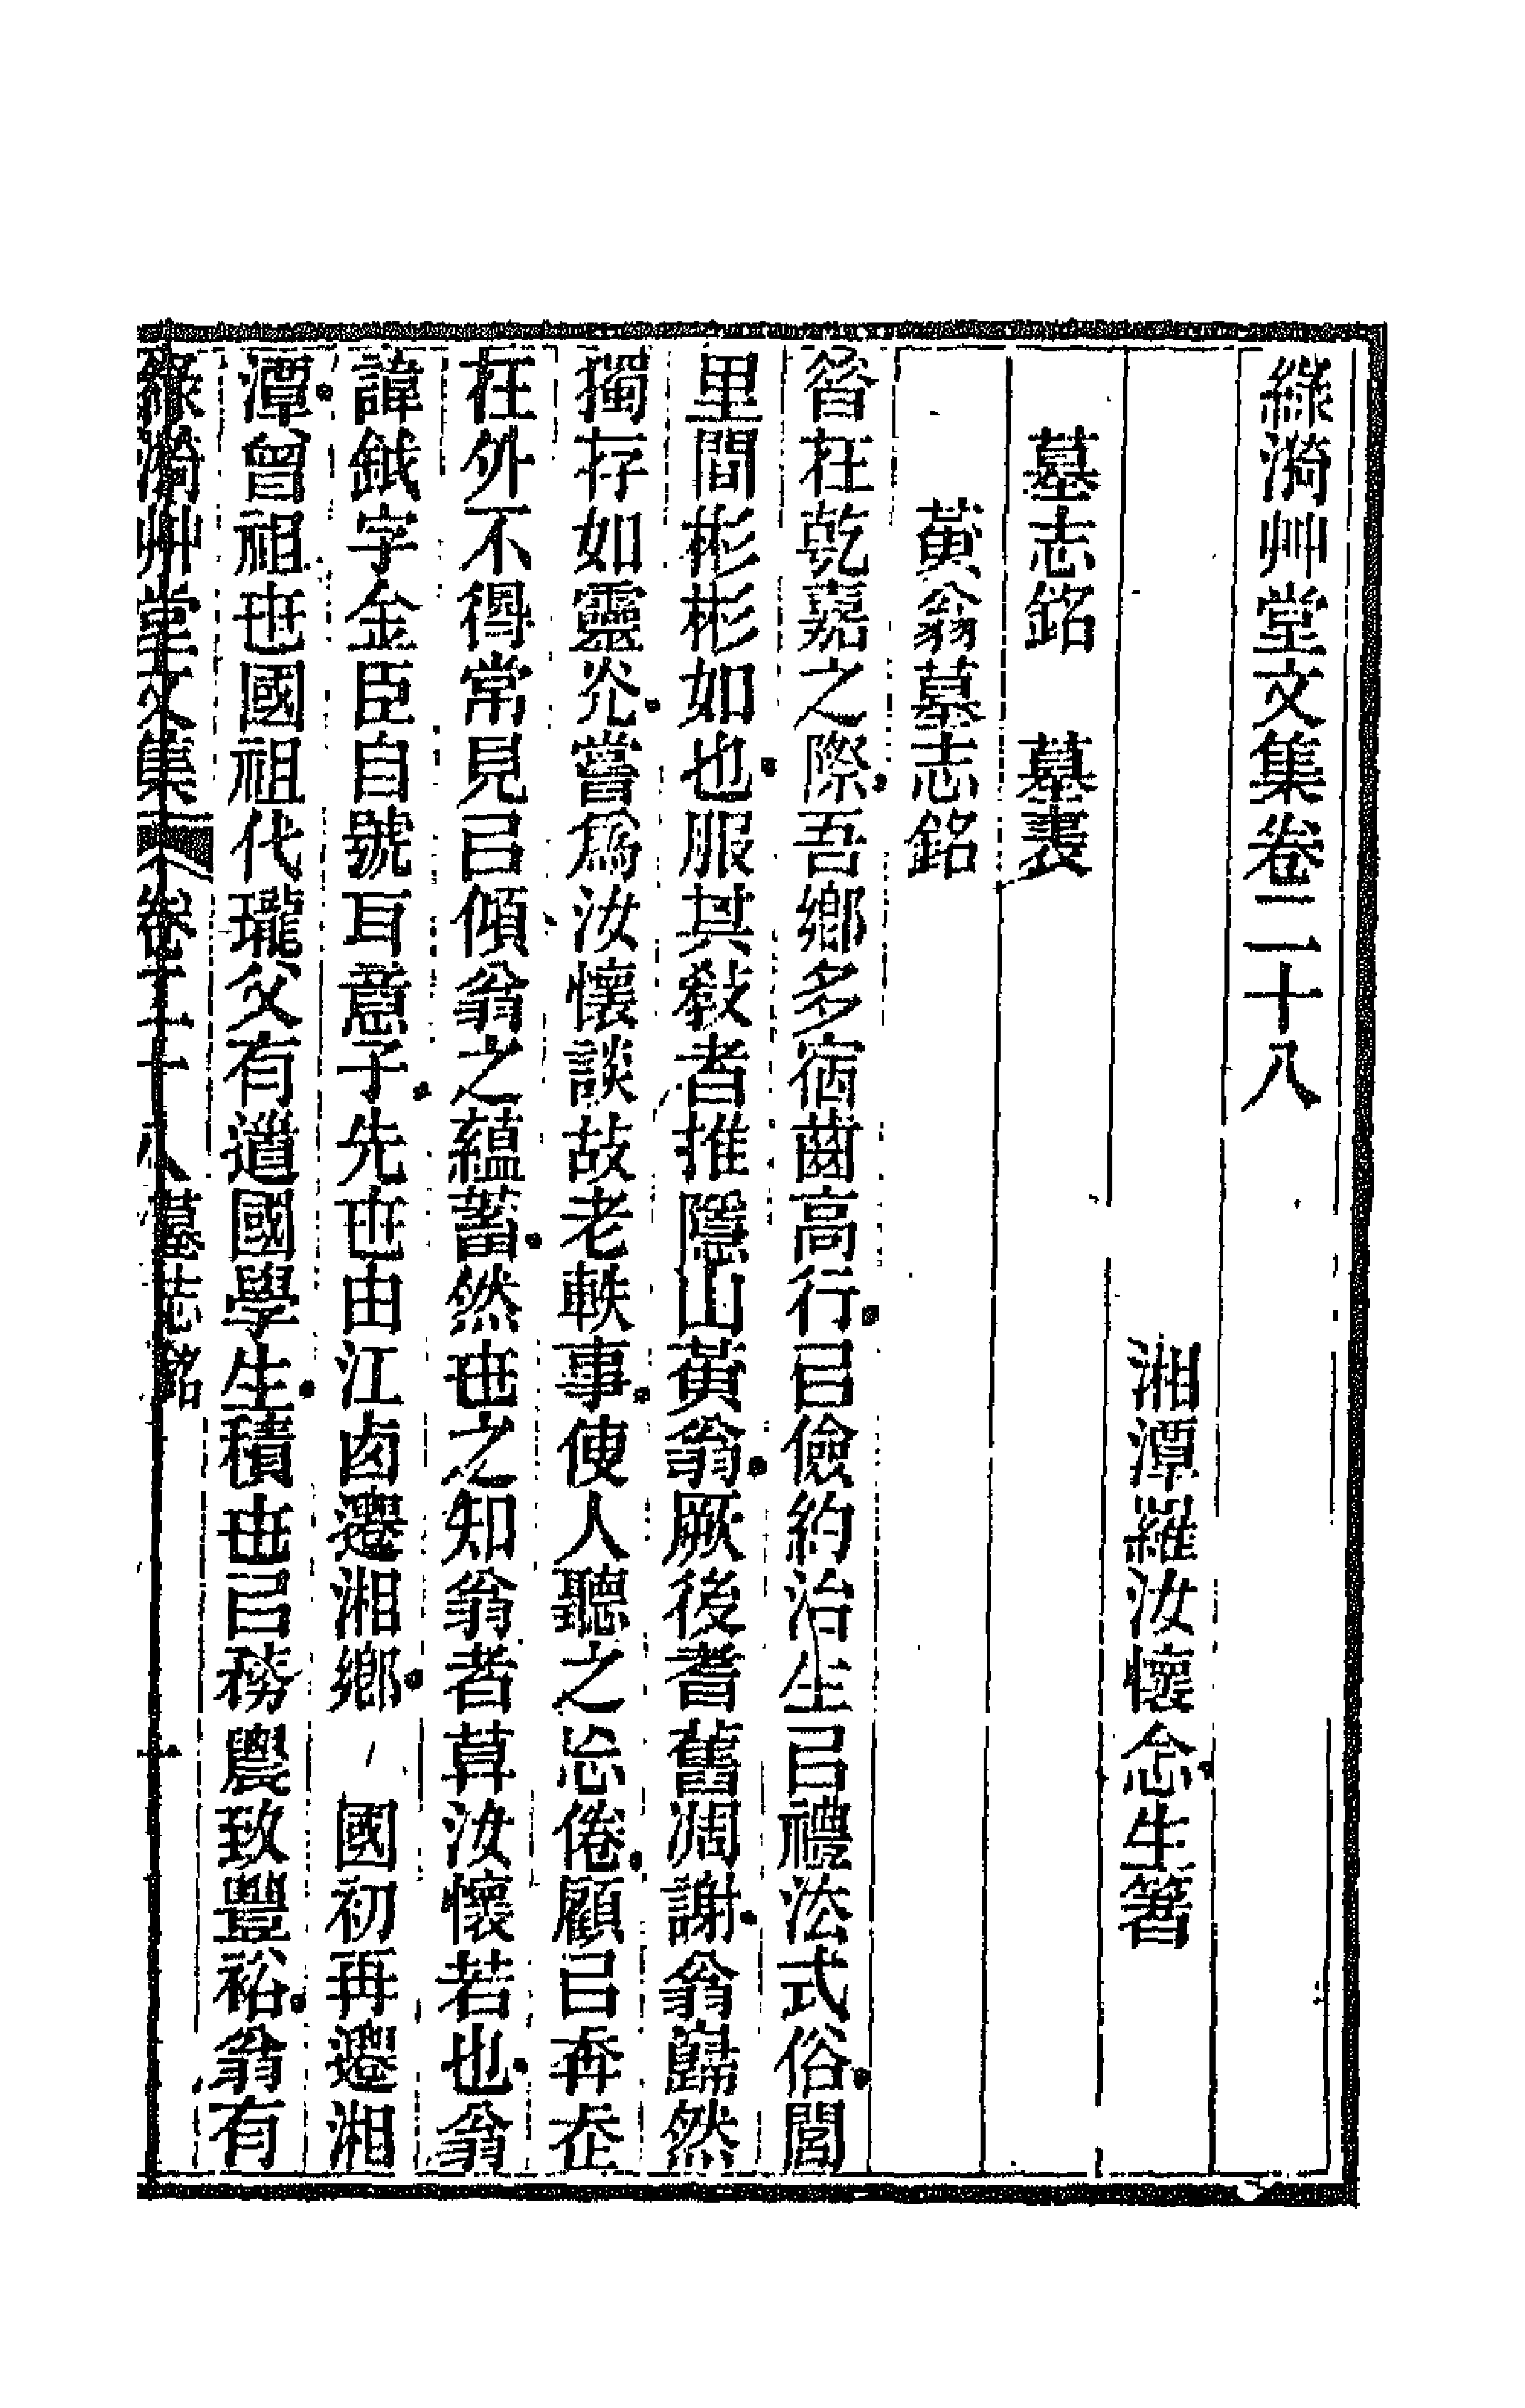 綠漪艸堂文集卷二十八
湘潭羅汝懷念生箸
墓志銘　墓表
黃翁墓志銘
昝在乾嘉之際吾鄉多宿齒高行㠯儉約治生㠯禮法式俗閭
里間彬彬如也服其敎者推隱山黃翁厥後耆舊凋謝翁歸然
獨存如靈光嘗爲汝懷談故老軼事使人聽之忘倦顧㠯再在
在外不得常見㠯傾翁之蘊蓄然世之知翁者草汝懷若也翁
諱鉞字金臣自號耳意子先世由江卥遷湘鄉　國初再遷湘
潭曾祖世國祖代瓏父有遒國學生積世㠯務農致豐裕翁有
綠漪艸堂文集　卷二十八墓志銘　一